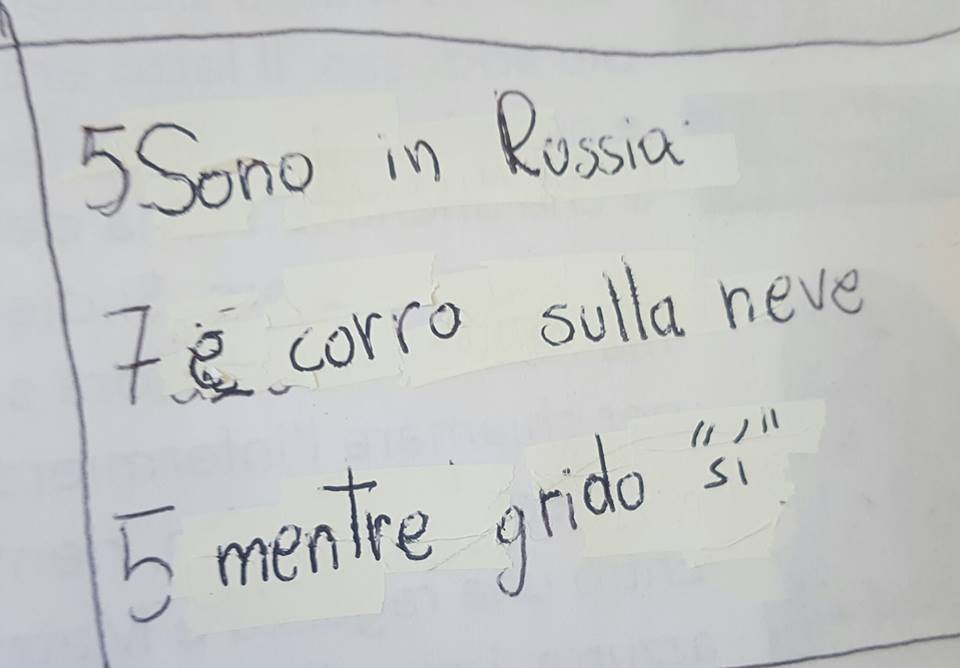 5 Sono in Russia
7 e corro sulla neve
5 mentre grido "sí"